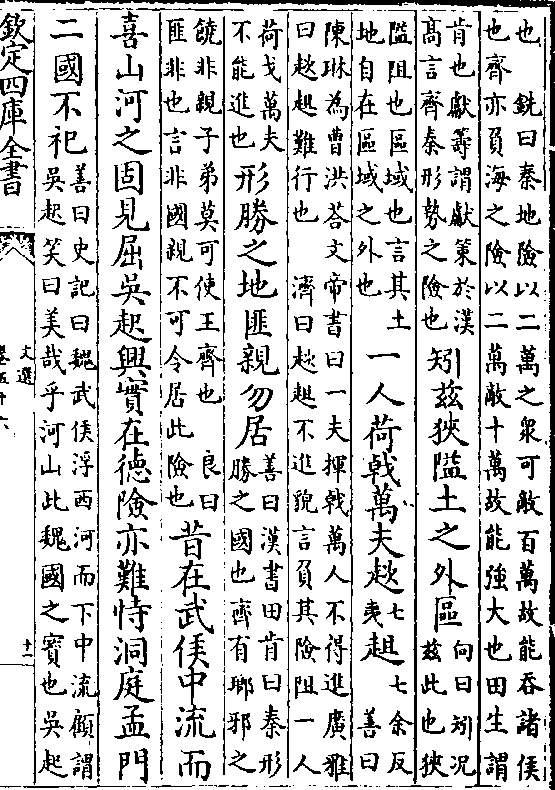 也　銑曰秦地險以二萬之衆可敵百萬故能吞諸侯
也齊亦負海之險以二萬敵十萬故能強大也田生謂
肯也獻籌謂獻策於漢
髙言齊秦形勢之險也
矧茲狹隘土之外區
向曰矧況
茲此也狹
隘阻也區域也言其土
地自在區域之外也
一人荷戟萬夫趑
七
夷
趄
七余反
善曰
陳琳為曹洪荅文帝書曰一夫揮戟萬人不得進廣雅
曰趑趄難行也　濟曰趑趄不進貌言負其險阻一人
荷戈萬夫
不能進也
形勝之地匪親勿居
善曰漢書田肯曰秦形
勝之國也齊有瑯邪之
饒非親子弟莫可使王齊也　良曰
匪非也言非國親不可令居此險也
昔在武侯中流而
喜山河之固見屈吳起興實在德險亦難恃洞庭孟門
二國不祀
善曰史記曰魏武侯浮西河而下中流顧謂
吳起笑曰美哉乎河山此魏國之寶也吳起
欽定四庫全書
文選
卷五十六
十一